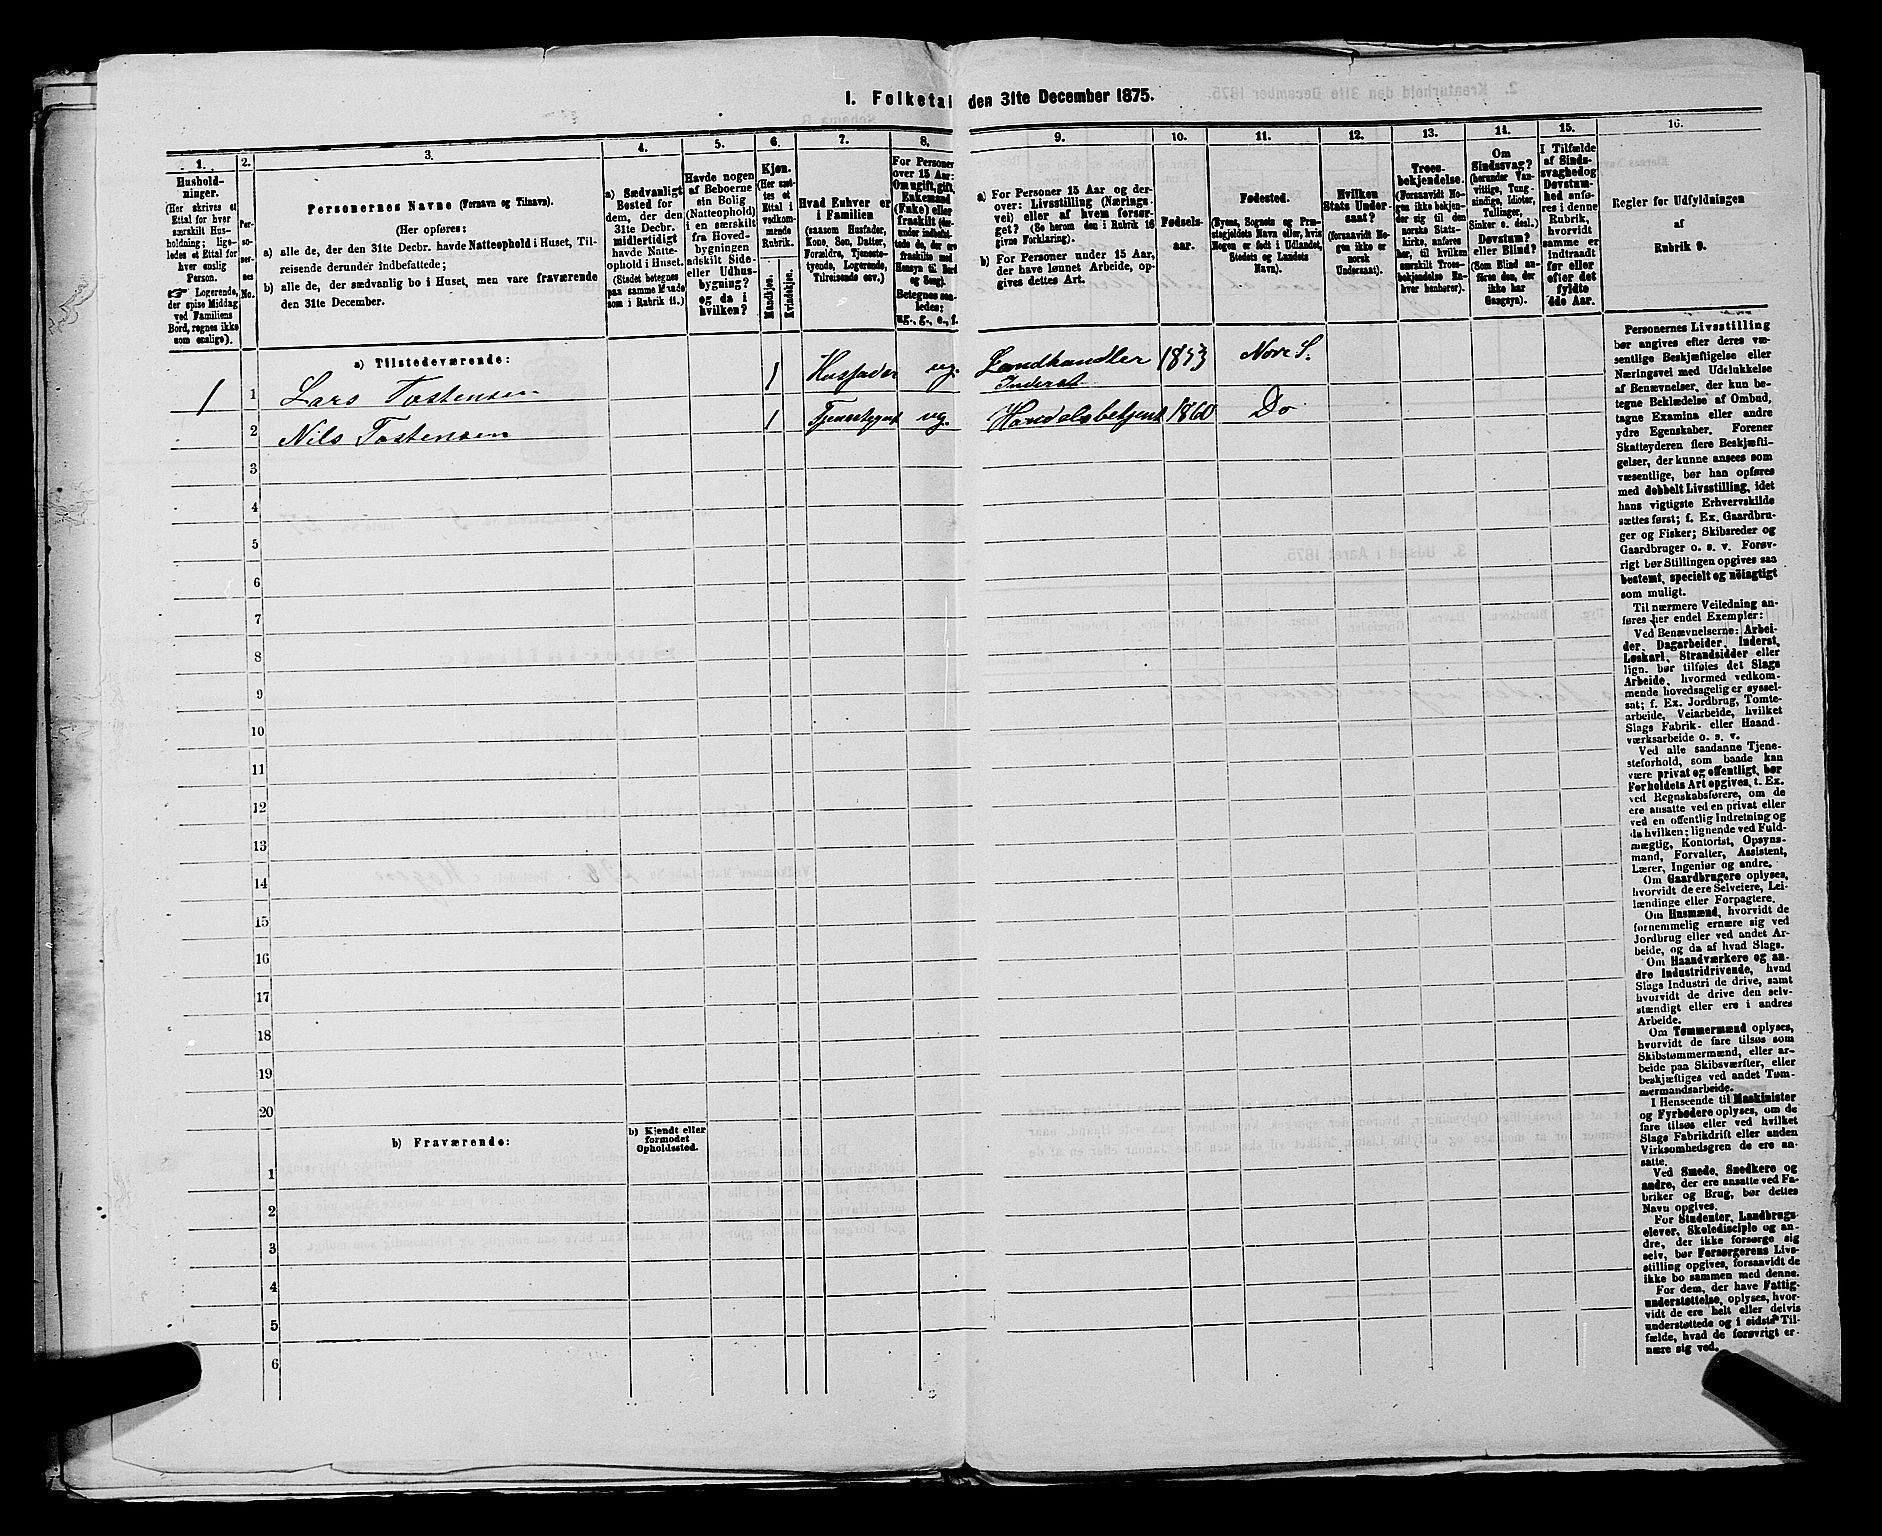 1. Folketal den 31te December 1875.
1.
2.
3.
4.
5.
6.
7.
8.
9.
10.
11.
12.
13.
14.
15.
16.
Hushold-
ninger.
(Her skrives et
Ettal for hver
særskilt Hus-
holdning; lige-
ledes et Ettal for
hver enslig
Person.
☞ Logerende,
der spise Middag
ved Familiens
Bord, regnes ikke
som enslige).
Per-
so-
ner-
nes
No.
Personernes Navne (Fornavn og Tilnavn).
(Her opføres:
a) alle de, der den 31te Decbr. havde Natteophold i Huset, Til-
reisende derunder indbefattede;
b) alle de, der sædvanlig bo i Huset, men vare fraværende
den 31te December.
a) Sædvanligt
Bosted for
dem, der den
31te Decbr.
midlertidigt
havde Natte-
ophold i Huset.
(Stedet betegnes
paa samme Maade
som i Rubrik 11.)
Havde nogen
af Beboerne
sin Bolig
(Natteophold)
i en særskilt
fra Hoved-
bygningen
adskilt Side-
eller Udhus-
bygning?
og da i
hvilken?
Kjøn.
(Her sæt-
tes et
Ettal i
vedkom-
mende
Rubrik.
Mandkjøn.
Kvindekjøn.
Hvad Enhver er
i Familien
(saasom Husfader,
Kone, Søn, Datter,
Forældre, Tjeneste-
tyende, Logerende,
Tilreisende osv.)
For Personer
over 15 Aar:
Om ugift, gift,
Enkemand
(Enke) eller
fraskilt (der-
under indbefat-
tede de, der ere
fraskilte med
Hensyn til Bord
og Seng).
Betegnes saa-
ledes:
ug., g., e., f.
a) For Personer 15 Aar og der-
over: Livsstilling (Nærings-
vei) eller af hvem forsør-
get? (Se herom den i Rubrik 16
givne Forklaring).
b) For Personer under 15 Aar,
der have lønnet Arbeide, op-
gives dettes Art.
Fødsels-
aar.
Fødested.
(Byens, Sognets og Præ-
stegjeldets Navn eller, hvis
Nogen er født i Udlandet,
Stedets og Landets
Navn).
Hvilken
Stats Under-
saat?
(forsaavidt No-
gen ikke er
norsk
Undersaat).
Troes-
bekjendelse.
(Forsaavidt No-
gen ikke bekjen-
der sig til den
norske Stats-
kirke, anføres
her, til hvilken
særskilt Troes-
bekjendelse En-
hver henhører).
Om
Sindssvag?
(herunder Van-
vittige, Tung-
sindige, Idioter,
Tullinger,
Sinker o. desl.)
Døvstum?
eller Blind?
(Som Blind an-
føres den, der
ikke har
Gangsyn).
I Tilfælde
af Sinds-
svaghed og
Døvstum-
hed anfø-
res i denne
Rubrik,
hvorvidt
samme er
indtraadt
før eller
efter det
fyldte
4de Aar.
Regler for Udfyldningen
af
Rubrik 9.
a) Tilstedeværende:
1 1 Lars Tostensen 1 Husfader ug. Landhandler Inderst 1853 Nore S.
2 Nils Tostensen 1 Tjenestegut ug. Handelsbetjent 1860 Do
3
4
5
6
7
8
9
10
11
12
13
14
15
16
17
18
19
20
b) Fraværende:
b) Kjendt eller
formodet
Opholdssted.
1
2
3
4
5
6
Personernes Livsstilling
bør angives efter deres væ-
sentlige Beskjæftigelse eller
Næringsvei med Udelukkelse
af Benævnelser, der kun be-
tegne Beklædelse af Ombud,
tagne Examina eller andre
ydre Egenskaber. Forener
Skatteyderen flere Beskjæfti-
gelser, der kunne ansees som
væsentlige, bør han opføres
med dobbelt Livsstilling, idet
hans vigtigste Erhvervskilde
sættes først; f. Ex. Gaardbru-
ger og Fisker; Skibsreder og
Gaardbruger o. s. v. Forøv-
rigt bør Stillingen opgives saa
bestemt, specielt og nöiagtigt
som muligt.
Til nærmere Veiledning an-
føres her endel Exempler:
Ved Benævnelserne: Arbei-
der, Dagarbeider, Inderst,
Løskarl, Strandsidder eller
lign. bør tilføies det Slags
Arbeide, hvormed vedkom-
mende hovedsagelig er syssel-
sat; f. Ex. Jordbrug, Tomte-
arbeide, Veiarbeide, hvilket
Slags Fabrik- eller Haand-
værksarbeide o. s. v.
Ved alle saadanne Tjene-
steforhold, som baade kan
være privat og offentligt, bør
Forholdets Art opgives, t. Ex.
ved Regnskabsførere, om de
ere ansatte ved en privat eller
ved en offentlig Indretning og
da hvilken; lignende ved Fuld-
mægtig, Kontorist, Opsyns-
mand, Forvalter, Assistent,
Lærer, Ingeniør og andre.
Om Gaardbrugere oplyses,
hvorvidt de ere Selveiere, Lei-
lændinge eller Forpagtere.
Om Husmænd, hvorvidt de
fornemmelig ernære sig ved
Jordbrug eller ved andet Ar-
beide, og da af hvad Slags.
Om Haandværkere og an-
dre Industridrivende, hvad
Slags Industri de drive, samt
hvorvidt de drive den selv-
stændigt eller ere i andres
Arbeide.
Om Tømmermænd oplyses,
hvorvidt de fare tilsøs som
Skibstømmermænd, eller ar-
beide paa Skibsværfter, eller
beskjæftiges ved andet Tøm-
mermandsarbeide.
I Henseende til Maskinister
og Fyrbødere oplyses, om de
fare tilsøs eller ved hvilket
Slags Fabrikdrift eller anden
Virksomhedsgren de ere an-
satte.
Ved Smede, Snedkere og
andre, der ere ansatte ved Fa-
briker og Brug, bør dettes
Navn opgives.
For Studenter, Landbrugs-
elever, Skoledisciple og an-
dre, der ikke forsørge sig
selv, bør Forsørgerens Livs-
stilling opgives, forsaavidt de
ikke bo sammen med denne.
For dem, der have Fattig-
understøttelse, oplyses, hvor-
vidt de ere helt eller delvis
understøttede og i sidste Til-
fælde, hvad de forøvrigt er-
nære sig ved.